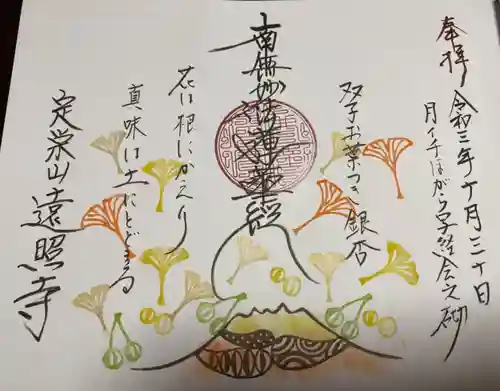 奉拝 令和三年十月三十日
月イチほがら写経会之砌
双子お葉つき銀杏
南無妙法蓮華経
花は根にかえり
真味は土にとどまる
定栄山遠照寺